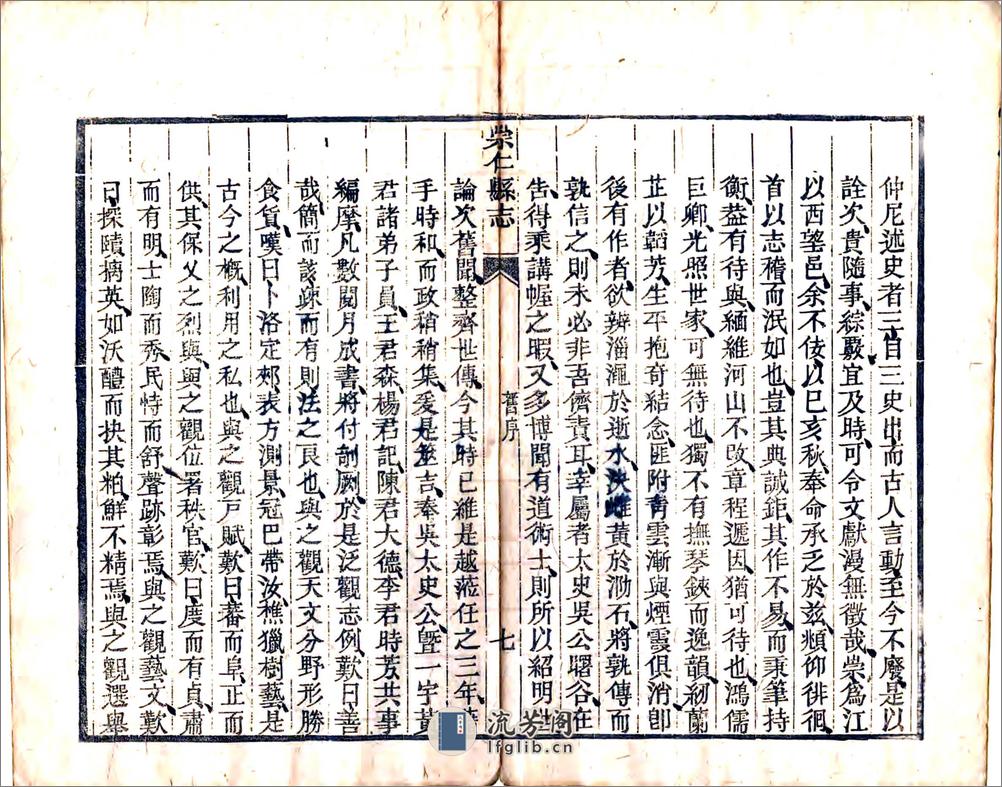 仲尼述史者三自三史出而古人言動至今不廢是以
詮次貴隨事綜覈宜及時可令文獻漫無徵哉崇為江
以西望邑余不佞以巳亥秋奉命承乏於兹頫仰徘徊
首以志稽而泯如也豈其典誠鉅其作不易而秉筆持
衡葢有待與緬維河山不改章程遞因猶可待也鴻儒
巨卿光照世家可無待也獨不有撫琴鋏而逸韻紉蘭
芷以韜芳生平抱奇結念匪附青雲漸與煙霞俱消卽
後有作者欲辨淄澠於逝水決雌黃於泐石將孰傳而
孰信之則未必非吾儕責耳幸屬者太史吳公曙谷在
告得乘講幄之暇又多博聞有道術士則所以紹明世
崇仁縣志
舊序
七
論次舊聞整齊世傳今其時已維是越蒞任之三年
手時和而政稍稍集爰是吉奉吳太史公曁一宇黃
君諸弟子員王君森楊君記陳君大德李君時芳共事
編摩凡數閱月成書將付剞劂於是泛觀志例歎曰善
哉簡而該疎而有則法之良也與之觀天文分野形勝
食貨嘆曰卜洛定郟表方測景冠巴帶汝樵獵樹藝是
古今之概利用之私也與之觀戶賦歎曰蕃而阜正而
供其保父之烈與與之觀位署秩官歎曰度而有貞肅
而有明士陶而秀民恃而舒聲跡彰焉與之觀藝文歎
曰探賾摘英如沃醴而抉其粕鮮不精焉與之觀選舉
流芳阁
lfglib.cn